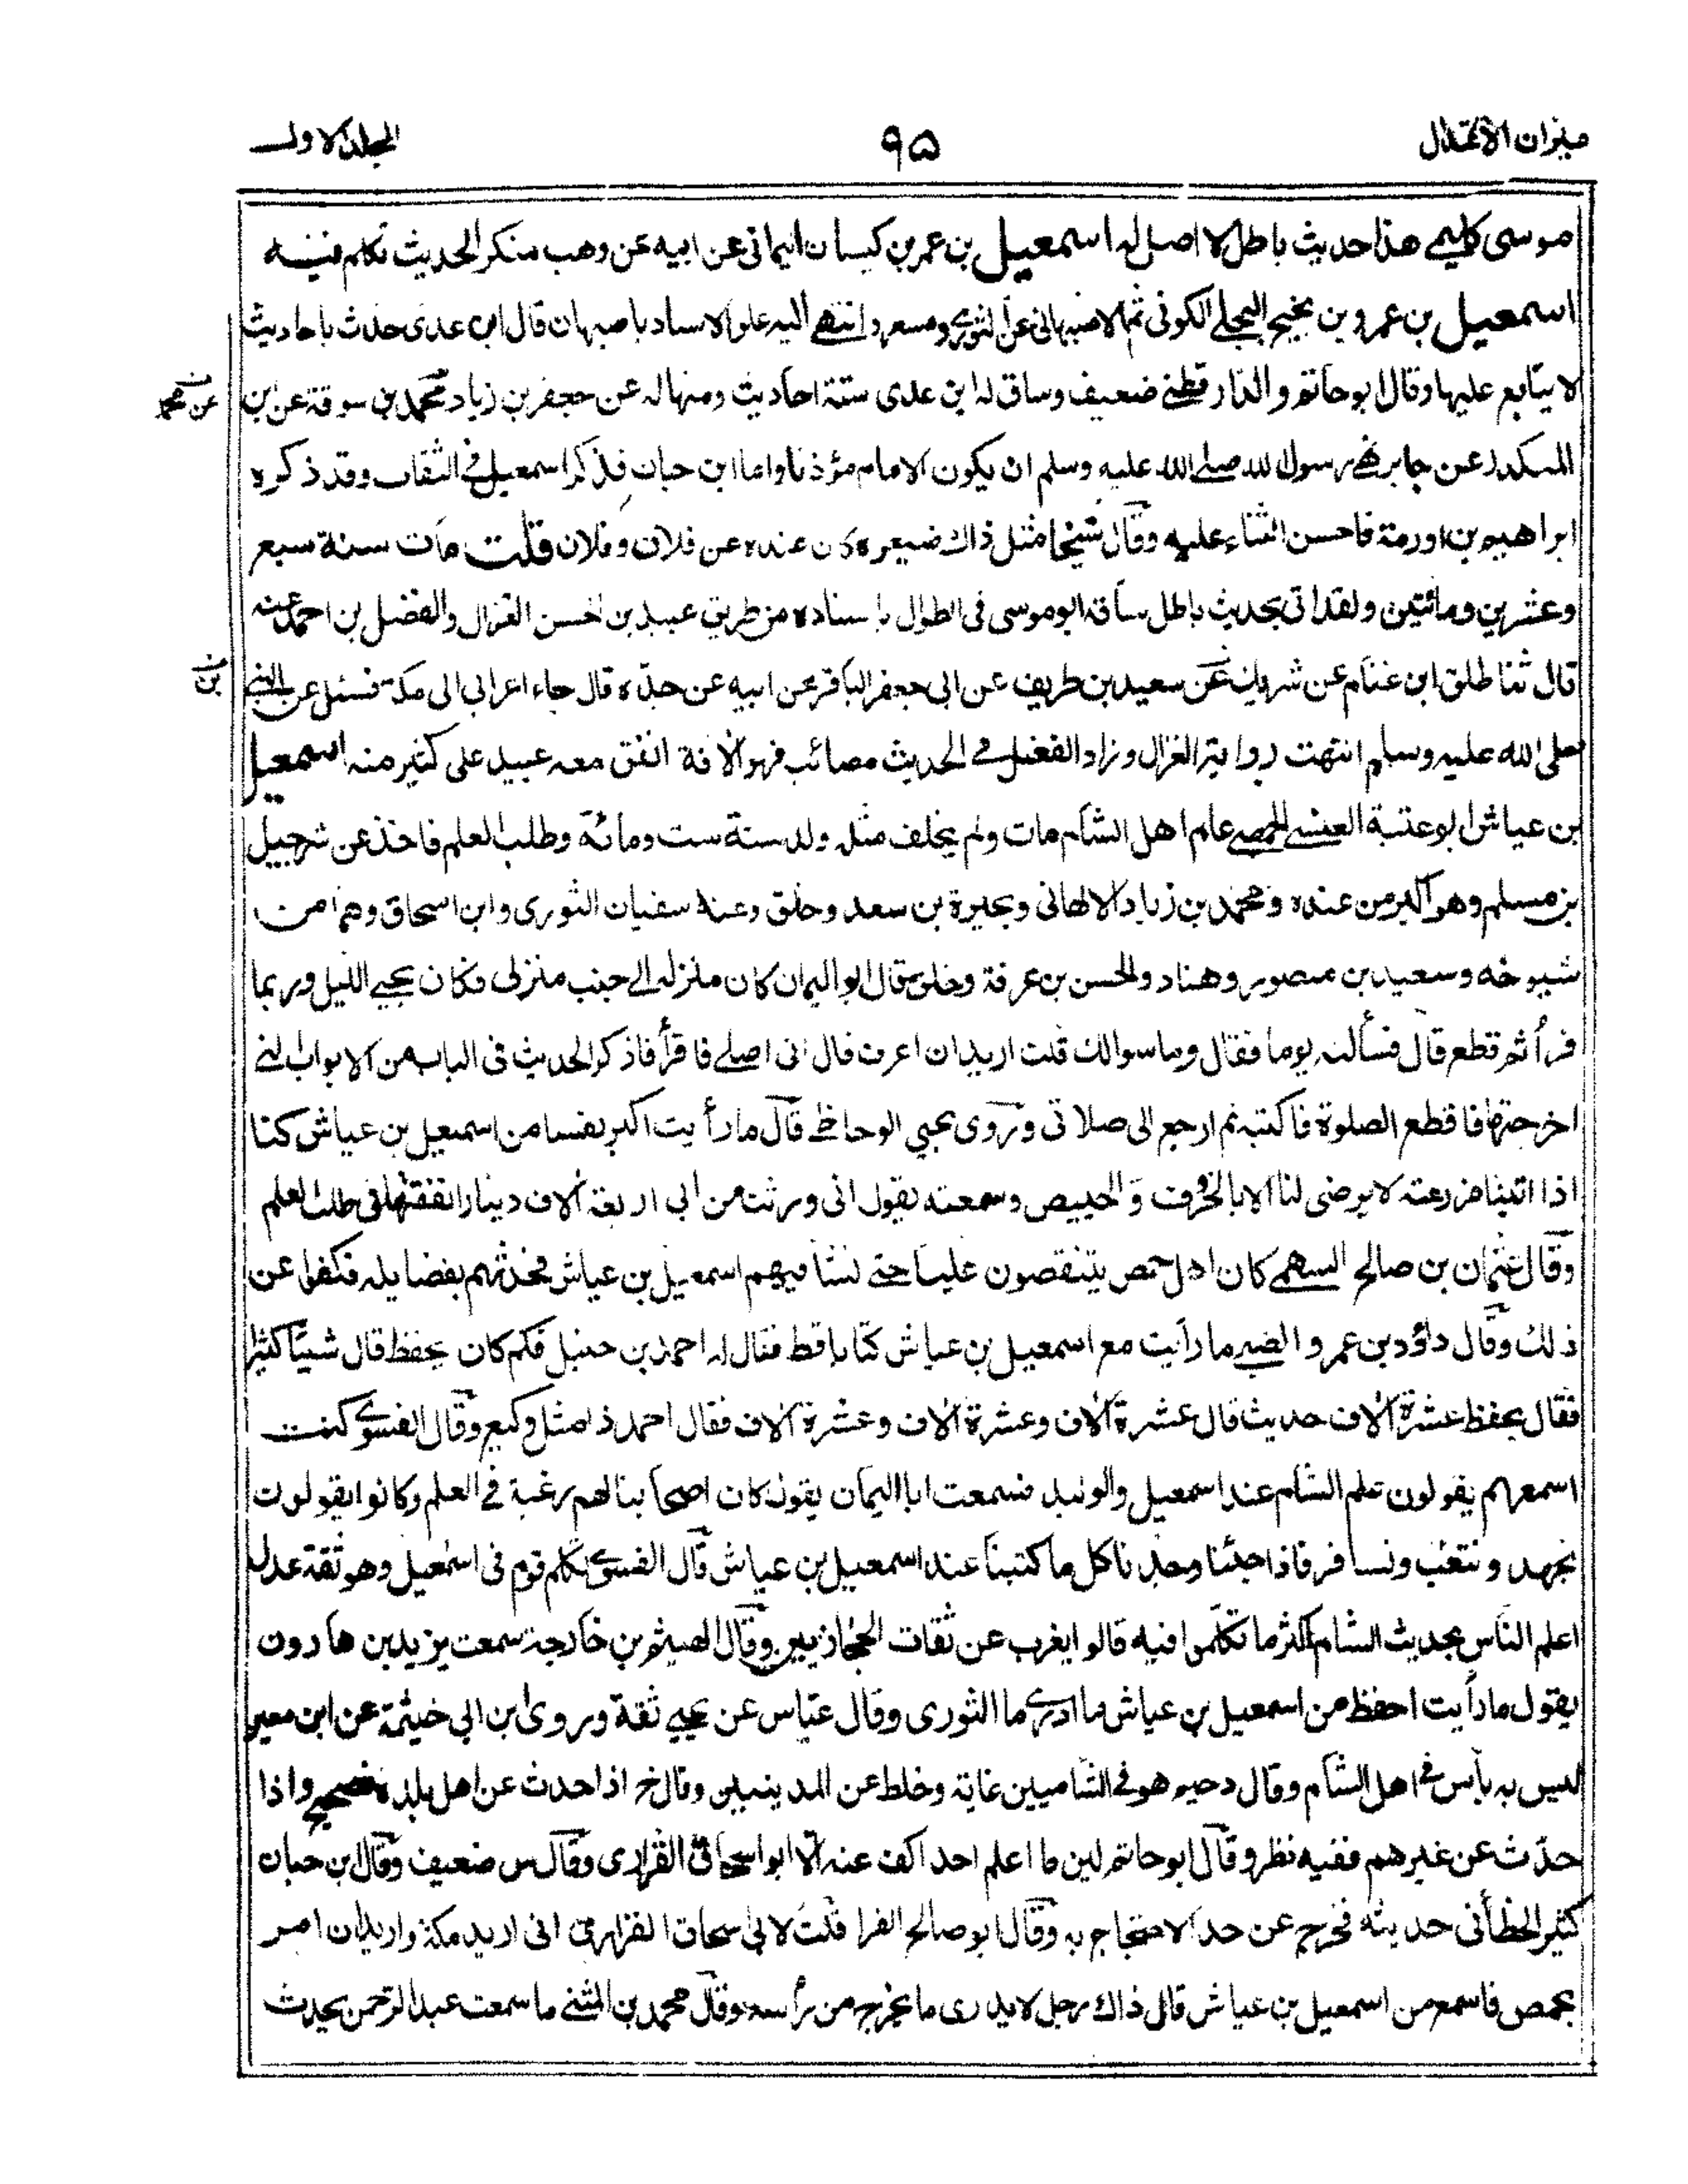 ميزان الاعتدال
٩٥
المجلد الاول
موسى كليمے هذا حديث باطل لا اصل له اسمعيل بن عمر بن كيسان اليمانى عن ابيه عن وهب منكر الحديث تكلم فيه
اسمعيل بن عمرو بن نجيح البجلے الكوفى ثم الاصبهانى عن الثورى ومسعر وانتهے اليه علو الاسناد باصبهان قال ابن عدى حدث باحاديث
لا يتابع عليها وقال ابو حاتم والدارقطنے ضعيف وساق له ابن عدى ستة احاديث ومنها له عن جعفر بن زياد محمد بن سوقة عن ابن
عن محمد
المنكدر عن جابر نهے رسول لله صلے الله عليه وسلم ان يكون الامام مؤذنا واما ابن حبان فذكر اسمعيل فے الثقات وقد ذكره
ابراهيم بن اورمة فاحسن الثناء عليه وقال شيخا مثل ذاك ضيعوه كان عنده عن فلان وفلان قلت مات سنة سبع
وعشرين ومائتين ولقد اتى بحديث باطل ساقه ابو موسى فى الطوال باسناده من طريق عبيد بن الحسن الغزال والفضل بن احمد عنه
قال ثنا طلق ابن غنام عن شريك عن سعيد بن طريف عن ابى جعفر الباقر عن ابيه عن جده قال جاء اعرابى الى مكة فسئل عن النبے
بن
صلى الله عليه وسلم انتهت رواية الغزال وزاد الفضل فے الحديث مصائب فهو الافة اتفق معه عبيد على كثير منه اسمعيل
بن عياش ابو عتبة العنسے الحمصے عالم اهل الشام مات ولم يخلف مثله ولد سنة ست ومائة وطلب العلم فاخذ عن شرحبيل
بن مسلم وهو اكبر من عنده ومحمد بن زياد الالهانى وبحيرة بن سعد وخلق وعنه سفيان الثورى وابن اسحاق وهما من
شيوخه وسعيد بن منصور وهناد والحسن بن عرفة وخلق قال ابو اليمان كان منزله الے جنب منزلى فكان يحيے الليل وربما
قرأ ثم قطع قال فسألته يوما فقال وما سوالك قلت اريد ان اعرف قال انى اصلے فاقرأ فاذكر الحديث فى الباب من الابواب لتے
اخرجتها فاقطع الصلوة فاكتبه ثم ارجع الى صلاتى وروى يحيى الوحاظے قال ما رأيت اكبر نفسا من اسمعيل بن عياش كنا
اذا اتينا مزرعته لا يرضى لنا الا بالخروف والخبيص وسمعته يقول انى ورثت من ابى اربعة الاف دينار انفقتها فى طلب العلم
وقال عثمان بن صالح السهمے كان اهل حمص يتنقصون عليا حتے نشا فيهم اسمعيل بن عياش فحدثهم بفضايله فكفوا عن
ذلك وقال داؤد بن عمرو الضبے ما رأيت مع اسمعيل بن عياش كتابا قط فقال له احمد بن حنبل فكم كان يحفظ قال شيئا كثيرا
فقال يحفظ عشرة الاف حديث قال عشرة الاف وعشرة الاف وعشرة الاف فقال احمد ذا مثل وكيع وقال الفسوے كنت
اسمعهم يقولون علم الشام عند اسمعيل والوليد فسمعت ابا اليمان يقول كان اصحابنا لهم رغبة فے العلم وكانوا يقولون
نجهد ونتعب ونسافر فاذا جئنا وجدنا كل ما كتبنا عند اسمعيل بن عياش قال الفسوے تكلم قوم فى اسمعيل وهو ثقة عدل
اعلم الناس بحديث الشام اكثر ما تكلموا فيه قالوا يغرب عن ثقات الحجازيين وقال الهيثم بن خارجة سمعت يزيد بن هارون
يقول ما رأيت احفظ من اسمعيل بن عياش ما ادرے ما الثورى وقال عباس عن يحيے ثقة وروى ابن ابى خيثمة عن ابن معين
ليس به بأس فے اهل الشام وقال دحيم هو فے الشاميين غاية وخلط عن المدينيين وقال خ اذا حدث عن اهل بلده فصحيح واذا
حدث عن غيرهم ففيه نظر وقال ابو حاتم لين ما اعلم احد اكف عنه الا ابو اسحاق الفزارى وقال س ضعيف وقال بن حبان
كثير الخطأ فى حديثه فخرج عن حد الاحتجاج به وقال ابو صالح الفرا قلت لابى اسحاق الفزارى انى اريد مكة واريد ان امر
بحمص فاسمع من اسمعيل بن عياش قال ذاك رجل لا يدرى ما يخرج من رأسه وقال محمد بن المثنے ما سمعت عبد الرحمن يحدث